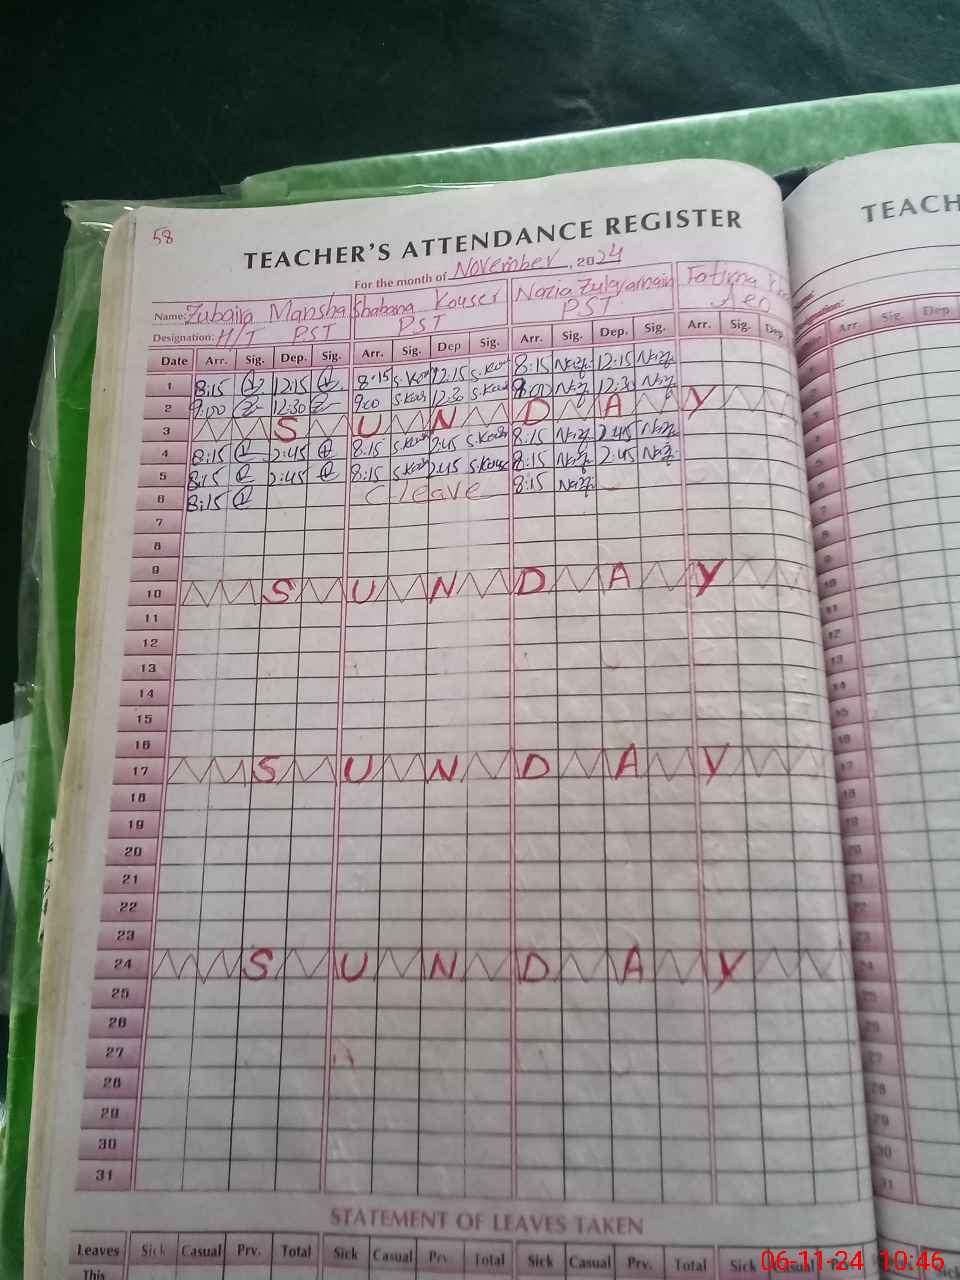 58
TEACHER'S ATTENDANCE REGISTER
TEACH
For the month of November, 2024
Name: Zubaira Mansha Shabana Kouser Nazia Zulqarnain Fatima
Designation: H/T PST PST PST
Date Arr. Sig. Dep. Sig. Arr. Sig. Dep Sig. Arr. Sig. Dep. Sig. Arr. Sig. Dep
Arr. Sig. Dep
1 8:15 12:15 8:15 S.Kous 12:15 S.Kous 8:15 Nazi 12:15 Nazi
2 9:00 12:30 9:00 S.Kous 12:30 S.Kous 8:00 Nazi 12:30 Nazi
3 S U N D A Y
4 8:15 2:45 8:15 S.Kous 2:45 S.Kous 8:15 Nazi 2:45 Nazi
5 8:15 2:45 8:15 S.Kous 2:45 S.Kous 8:15 Nazi 2:45 Nazi
6 8:15 C-leave 8:15 Nazi
7
8
9
10 S U N D A Y
11
12
13
14
15
16
17 S U N D A Y
18
19
20
21
22
23
24 S U N D A Y
25
26
27
28
29
30
31
STATEMENT OF LEAVES TAKEN
Leaves Sick Casual Prv. Total Sick Casual Prv. Total Sick Casual Prv. Total Sick Casual
This
06-11-24 10:46